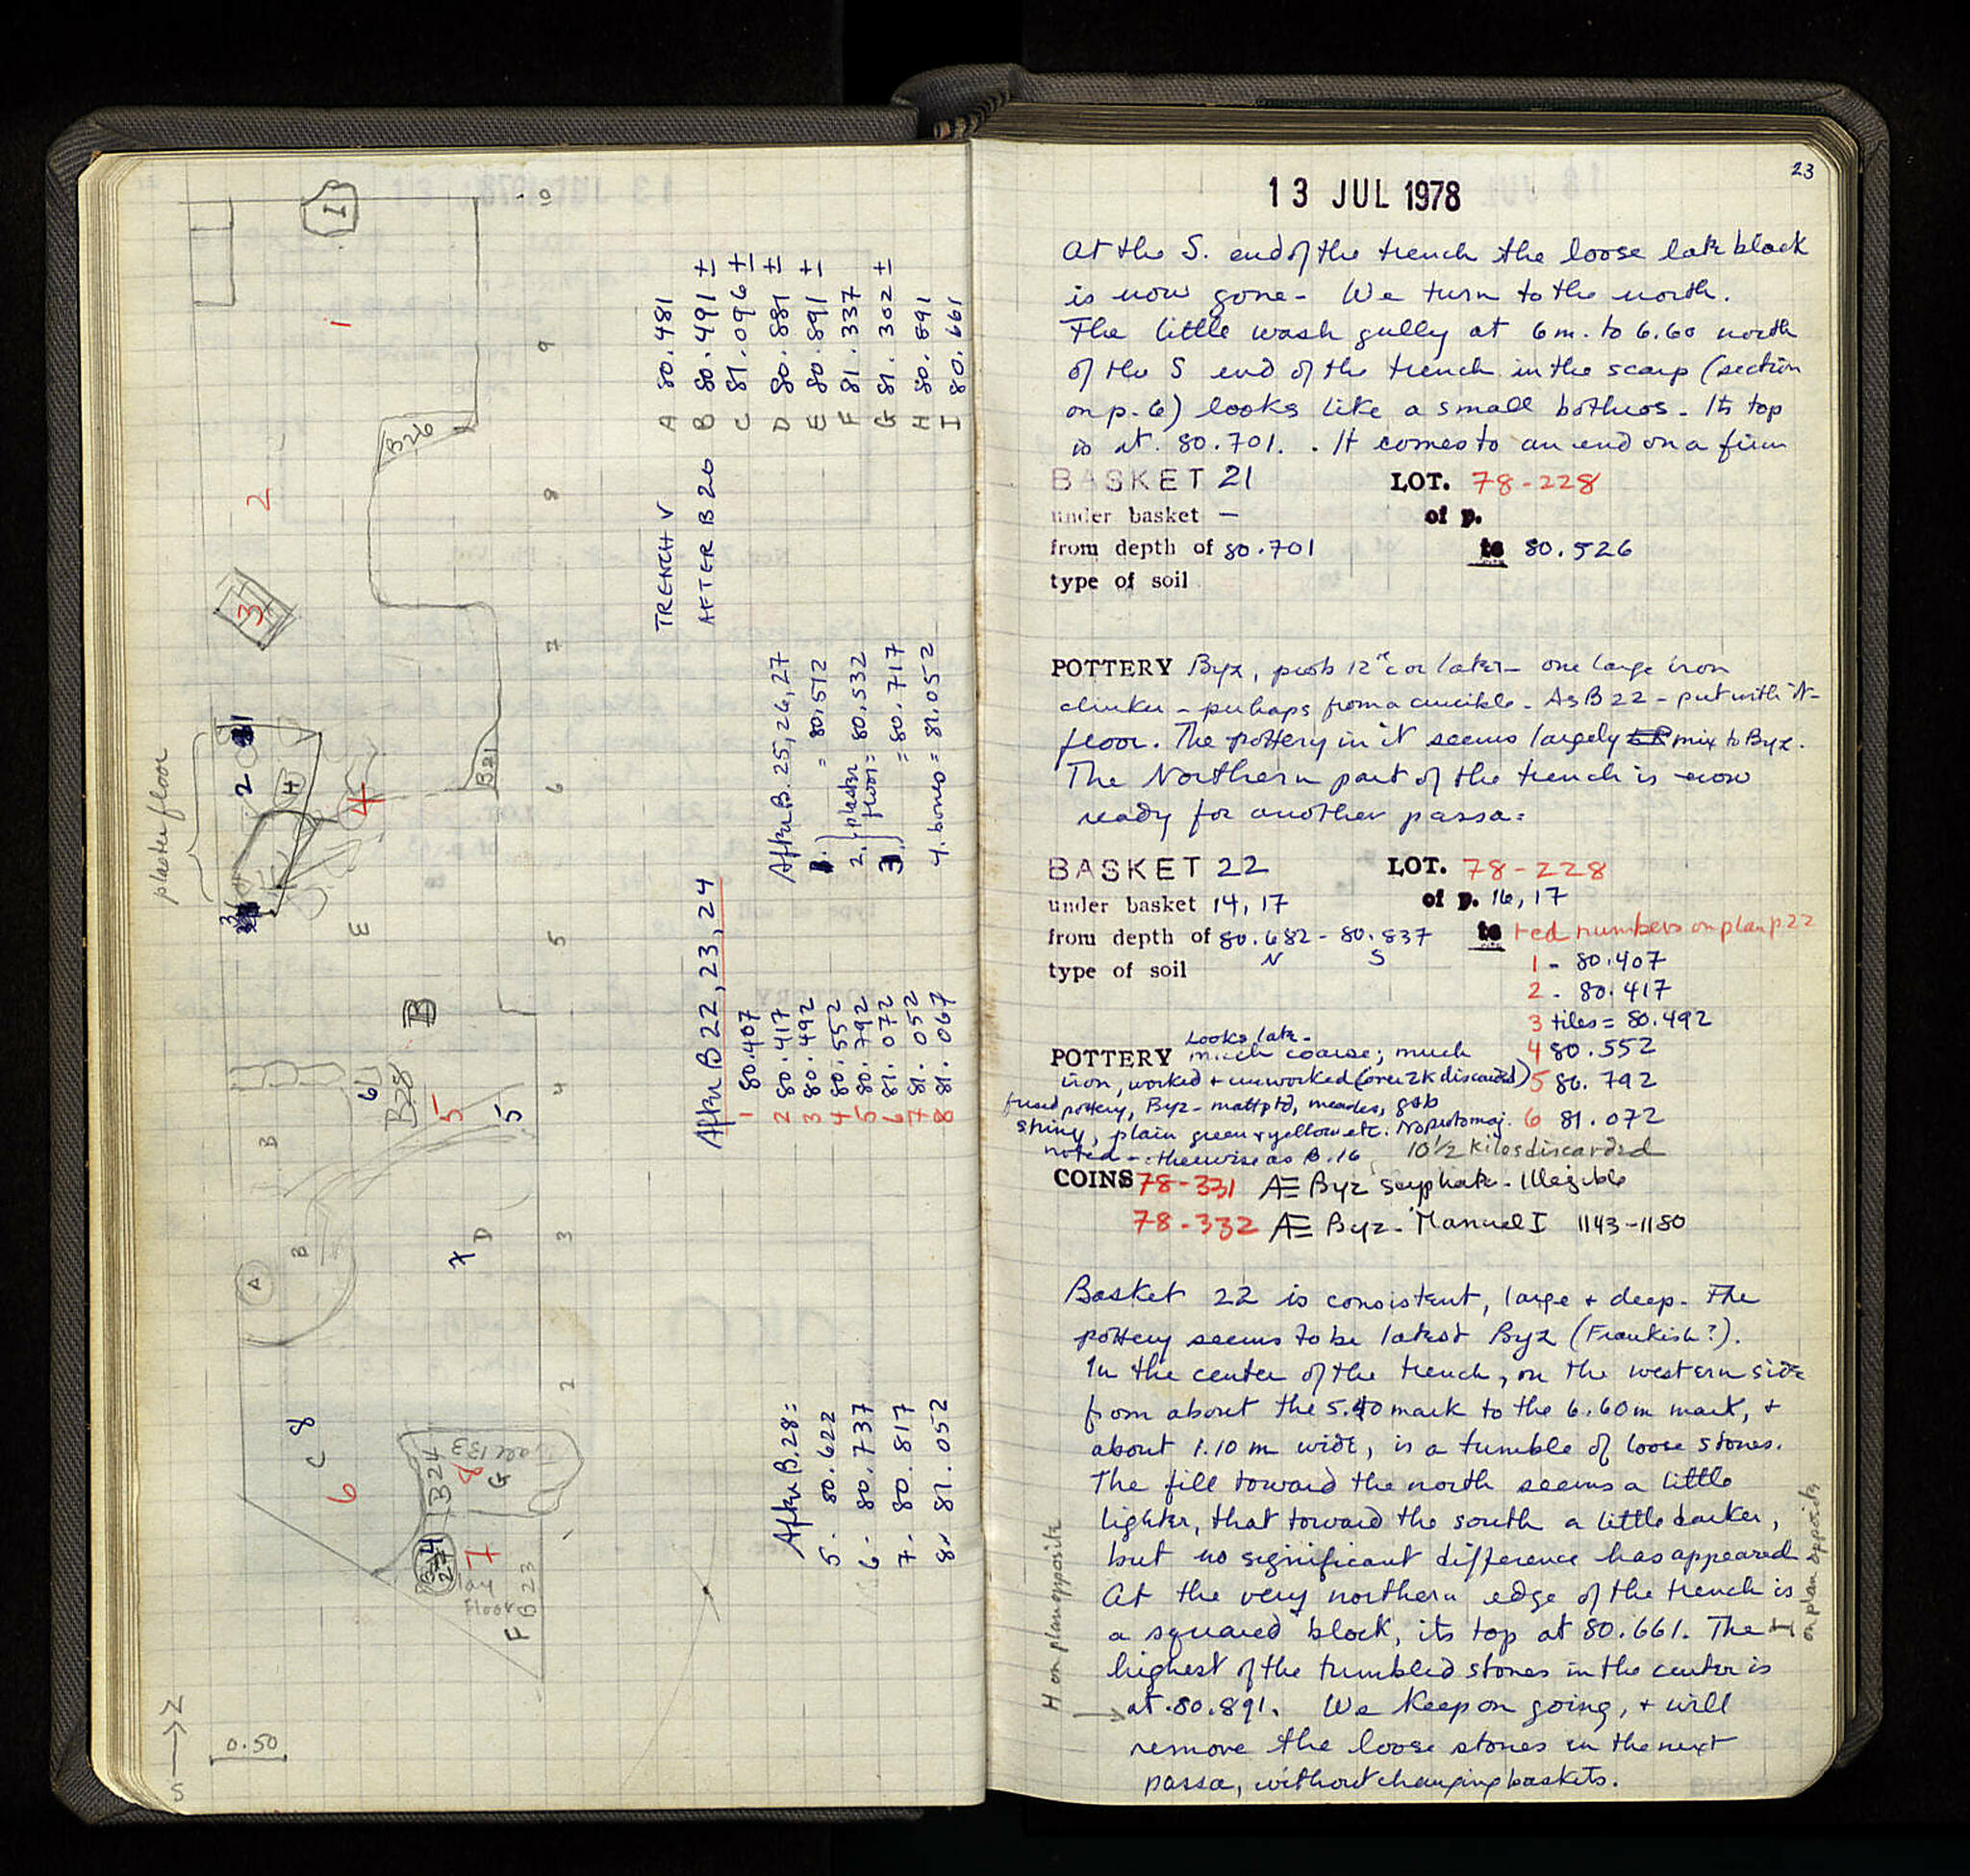 plaster floor
10
9
8
7
6
5
4
3
2
I
1
2
3
4
5
6
7
8
B26
B21
B25
B24
B23
A
B
B
B
C
D
E
F
G
H
1
2
3
4
5
6
7
8
clay
floor
S → N
0.50
TRENCH V
AFTER B 20
A 80.481
B 80.491 ±
C 81.096 ±
D 80.881 ±
E 80.891 ±
F 81.337
G 81.302 ±
H 80.891
I 80.661
After B.25, 26, 27
1.) = 80.512
2.} plaster
floor = 80.532
3.) = 80.717
4. bones = 81.052
After B22, 23, 24
1 80.407
2 80.417
3 80.492
4 80.552
5 80.792
6 81.072
7 81.052
8 81.067
After B.28:
5. 80.622
6. 80.737
7. 80.817
8. 81.052
23
13 JUL 1978
At the S. end of the trench the loose late block
is now gone. We turn to the north.
The little wash gully at 6 m. to 6.60 north
of the S end of the trench in the scarp (section
on p. 6) looks like a small bothros. Its top
is at 80.701. It comes to an end on a firm
BASKET 21 LOT. 78-228
under basket — of p.
from depth of 80.701 to 80.526
type of soil
POTTERY Byz, prob 12th c or later - one large iron
clinker - perhaps from a crucible - As B 22 - put with it -
floor. The pottery in it seems largely mix to Byz.
The Northern part of the trench is now
ready for another passa:
BASKET 22 LOT. 78-228
under basket 14, 17 of p. 16, 17
from depth of 80.682 - 80.837 to red numbers on plan p. 22
N S
type of soil
1 - 80.407
2 - 80.417
3 tiles = 80.492
4 80.552
5 80.792
6 81.072
Looks late -
POTTERY much coarse; much
iron, worked + unworked (over 2K discarded)
fused pottery, Byz - matt ptd, measles, g&b
shiny, plain green + yellow etc. No protomaj.
noted - otherwise as B.16 10 1/2 kilos discarded
COINS 78-331 Æ Byz scyphate - Illegible
78-332 Æ Byz - Manuel I 1143-1180
Basket 22 is consistent, large + deep. The
pottery seems to be latest Byz (Frankish?).
In the center of the trench, on the western side
from about the 5.40 mark to the 6.60 m mark, +
about 1.10 m wide, is a tumble of loose stones.
The fill toward the north seems a little
lighter, that toward the south a little darker,
but no significant difference has appeared.
At the very northern edge of the trench is
a squared block, its top at 80.661. The
highest of the tumbled stones in the center is
at 80.891. We keep on going, + will
remove the loose stones in the next
passa, without changing baskets.
H on plan opposite
I
on plan opposite